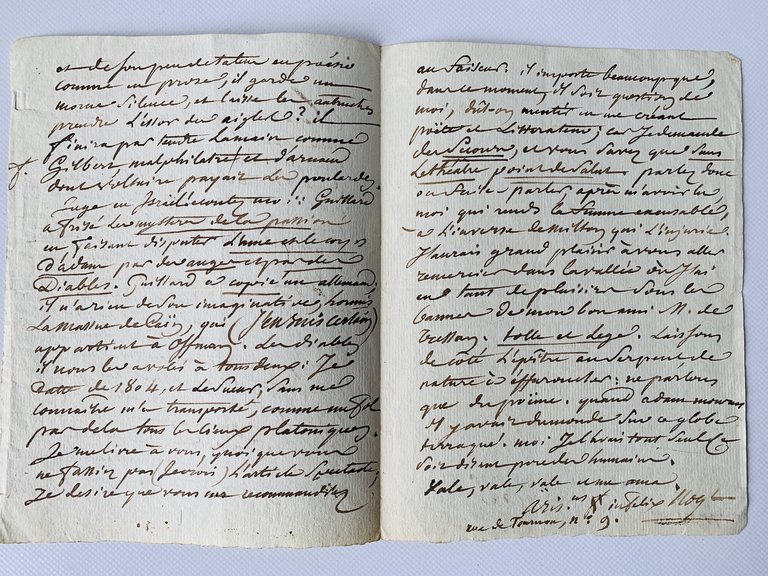 et de son peu de talent en poésie
comme en prose, il garde un
morne silence, et laisse les autruches
prendre l'essor des aigles? il
finira par tendre la main comme
Gilbert malphilatre et d'arnaud
dont Voltaire payait les poulardes.
Guillard
a frisé les mystères de la passion
en faisant disputer L'ame et le corps
d'adam par des anges et par des
Diables. Guillard a copié un allemand;
il n'a rien de son imaginative, hormis
La Massue de Caïn, qui (J'en suis certain)
appartient à Offman. Les diables
il nous les a volés à tous deux: Je
datte de 1804, et Lesueur, sans me
connaître m'a transporté, comme un fol
par dela tous les lieux platoniques.
Je me livre à vous, quoique vous
ne fassiez pas (Je crois) L'article Spectacle,
Je desire que vous me recommandiez
au faiseur. il importe beaucoup que,
dans ce moment, il soit question de
moi, dût-on mentir en me créant
poëte et Littérateur; car Je demande
des Secours, et vous savez que Sans
Le théatre point de Salut. parlez donc
ou faites parler après m'avoir lu
moi qui rends la femme excusable,
à L'inverse de Milton qui L'injurie.
J'aurais grand plaisir à vous aller
remercier dans la vallée où J'ai
eu tant de plaisirs sous les
de mon bon ami M. de
Tressan. tolle et Lege. Laissons
de côté L'épitre au Serpent de
nature à effaroucher: ne parlons
que du poëme. quand adam mourut
il y avait du monde sur ce globe
terraqué. moi Je L'avais tout seul
soit disant pere des humains.
Vale, vale, vale et me ama.
infelix
rue de Tournon, n° 9.